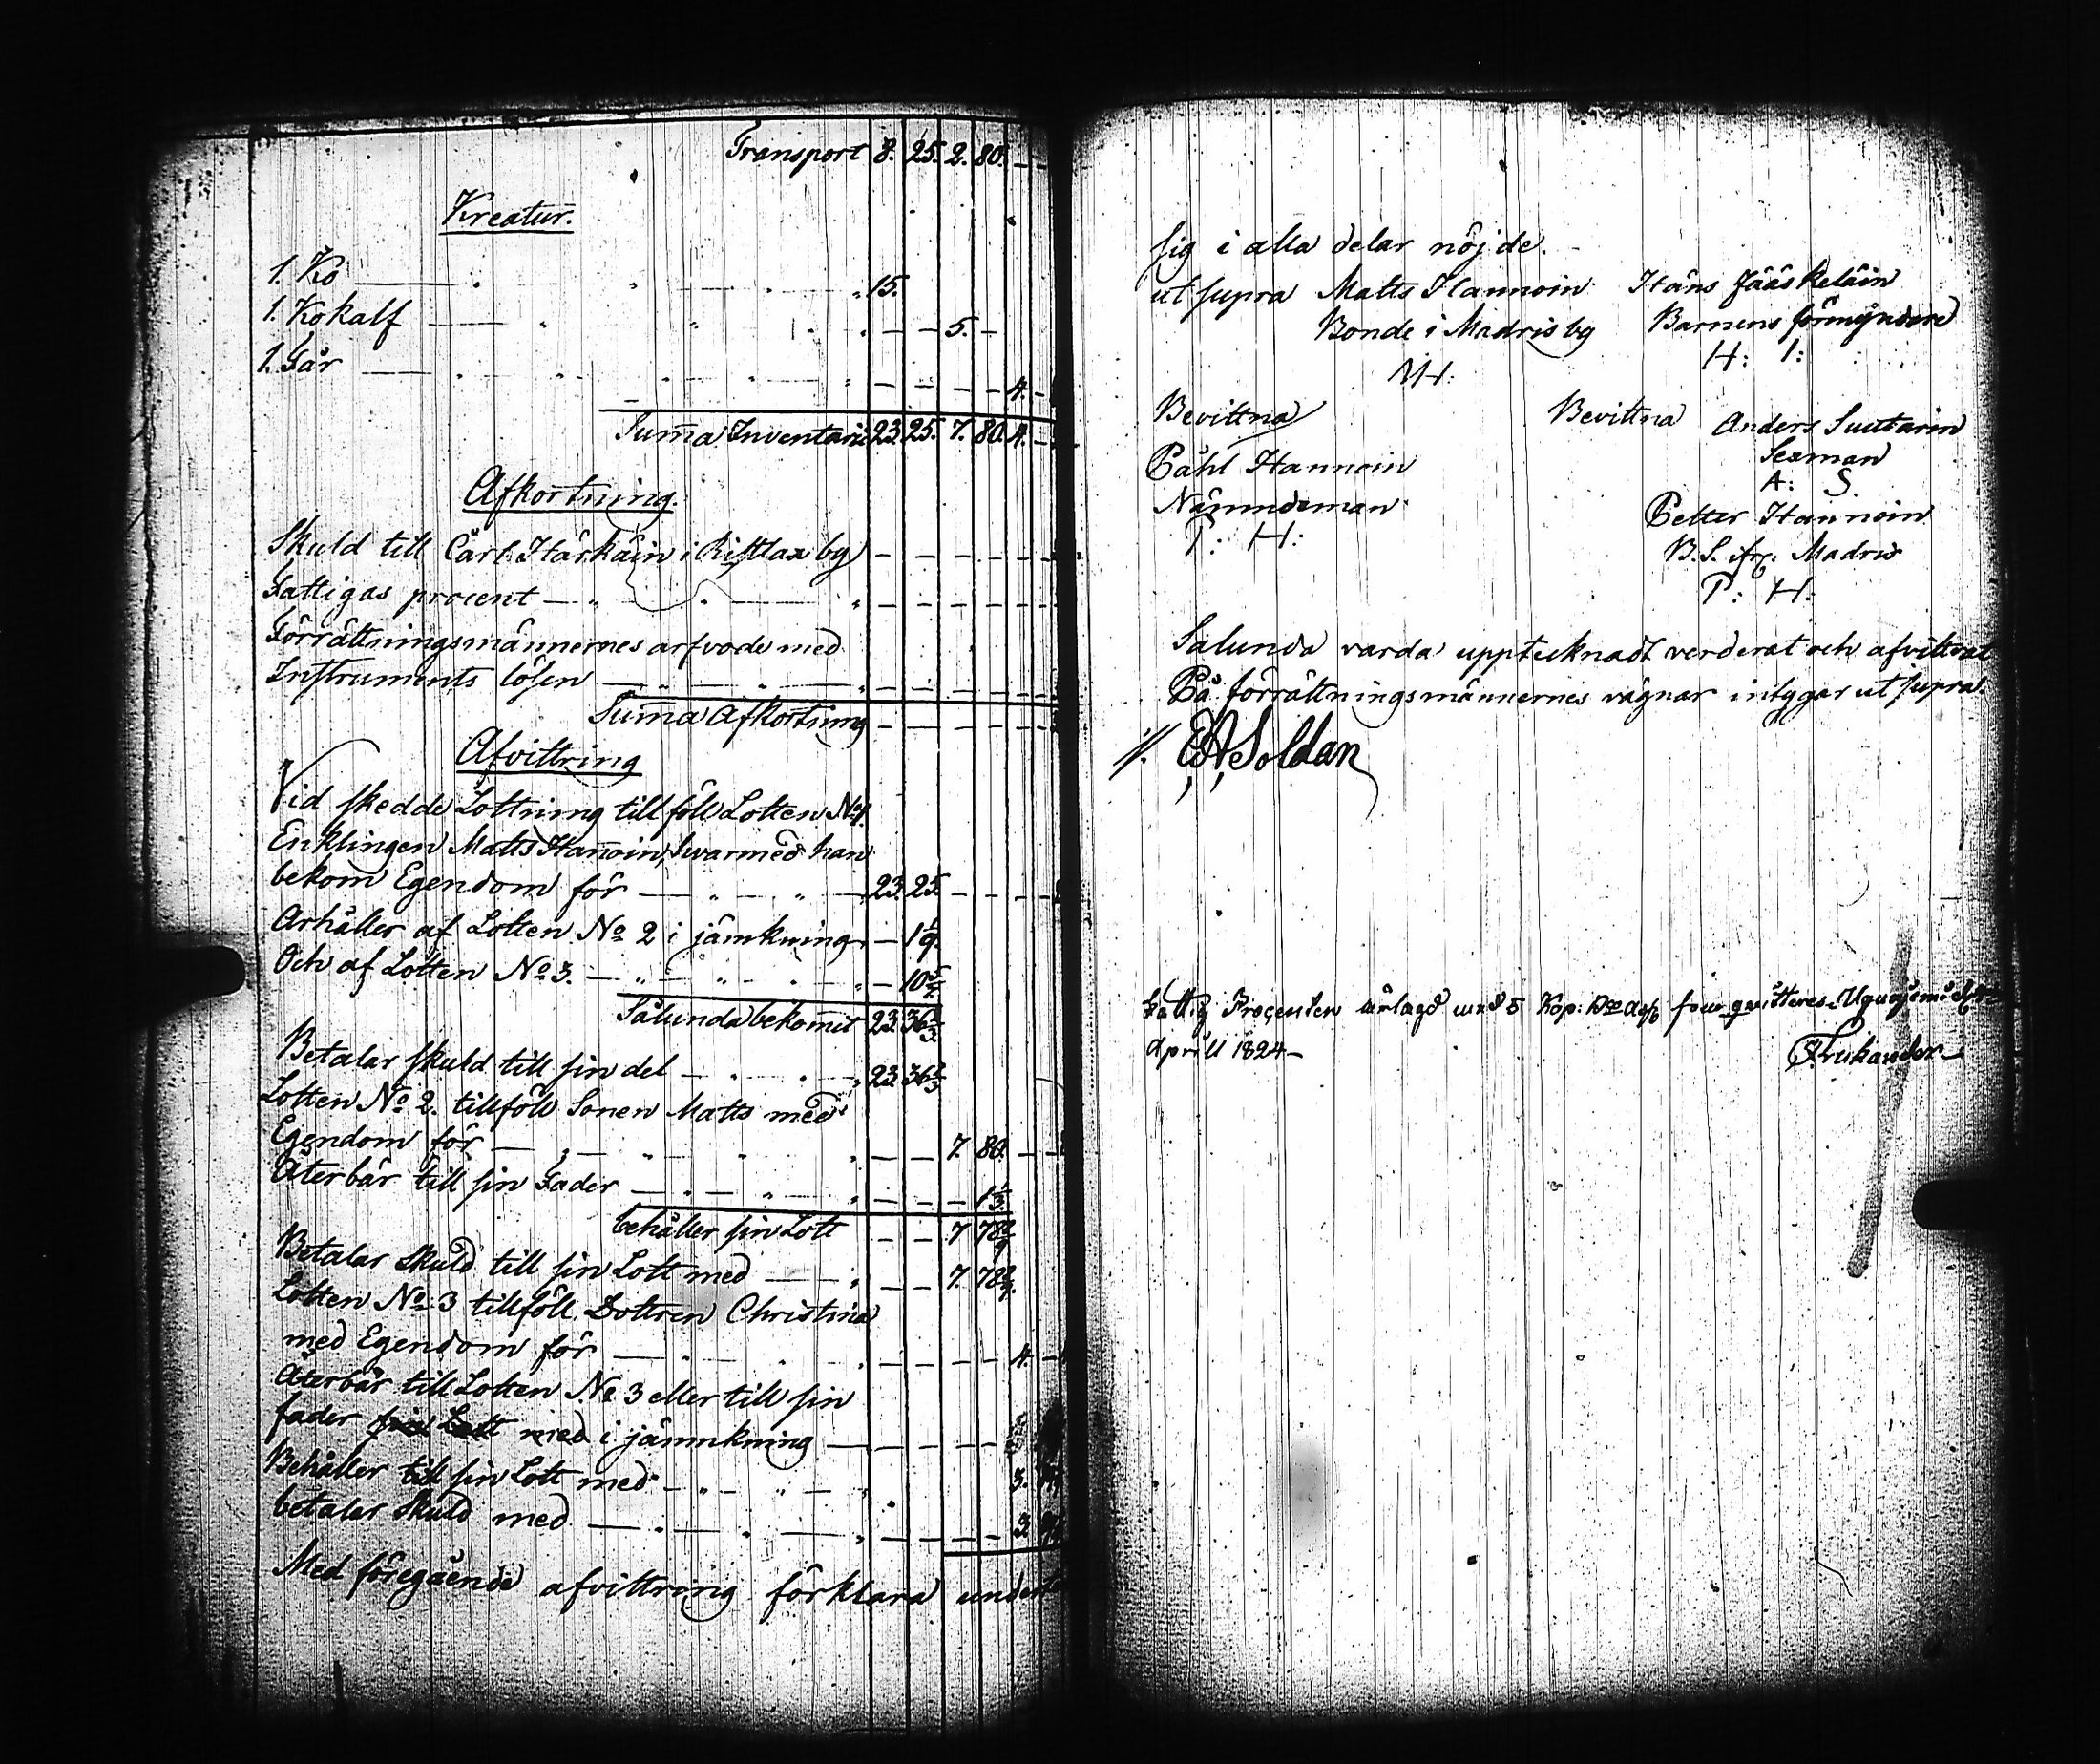 Transport 8. 25. 2. 80. – –
Kreatur.
1. Ko 15.
1. Kokalf – – 5. –
1. Får – – – – 4. –
Sum̄a Inventarii 23. 25. 7. 80. 4. –
Afkortning.
Skuld till Carl Härkäin i Ristlax by
Fattigas procent
Förrättningsmännernes arfvode med
Instruments lösen
Sum̄a Afkortning
Afvittring
Vid skedde Lottning tillföll Lotten No 1.
Enklingen Matts Hanoin, hvarmed han
bekom Egendom för 23. 25. – – –
Arhåller af Lotten No 2 i jämkning – 1 1/9.
Och af Lotten No 3. – 10
Sålunda bekom̄it 23. 36 2/3.
Betalar skuld till sin del 23. 36 2/3
Lotten No 2. tillföll Sonen Matts med
Egendom för – – 7. 80. – –
Återbär till sin Fader – – – 1 1/3.
behåller sin Lott – – 7. 78
Betalar skuld till sin Lott med – – 7. 78
Lotten No 3 tillföll Dottren Christina
med Egendom för – – – – 4. –
Återbär till Lotten No 3 eller till sin
fader sin Lott med i jämnkning
Behåller till sin Lott med 3.
betalar skuld med 3
Med föregående afvittring förklara
sig i alla delar nöjde.
ut supra Matts Hannoin Hans Jääskeläin
Bonde i Madris by Barnens förmyndare
MH. H: I:
Bevittna Bevittna Anders Suutarin
Påhl Hannoin Sexman
Nämndeman A: S.
P: H: Petter Hannoin
B. S. ifr. Madris
P: H:
Sålunda varda upptecknadt verderat och afvittrat
På förrättningsmännernes vägnar intygar ut supra.
EA Soldan
Fattig Procenten med 5 Kop: som qvitteres.
April 1824 –